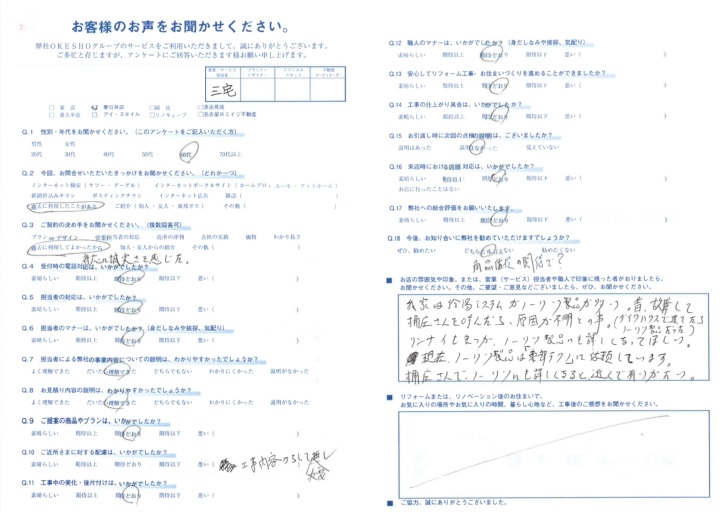 お客様のお声をお聞かせください。
弊社OKESHOグループのサービスをご利用いただきまして、誠にありがとうございます。
ご多忙と存じますが、アンケートにご回答いただきます様お願い申し上げます。
三宅
□ 本店 春日井店 □ 緑店 □ 多治見店
□ 名古屋ロエイ不動産
□ アイ・スタイル □ リノキューブ
Q.1 性別・年代をお聞かせください。（このアンケートをご記入いただく方）
男性 女性
20代 30代 40代 50代 60代 70代以上
Q.2 今回、お問合せいただいたきっかけをお聞かせください。（どれか一つ）
インターネット検索（ヤフー・グーグル） インターネットポータルサイト（ホームプロ、エーモ・アットホーム）
新聞折込みチラシ ポスティングチラシ インターネット広告 雑誌（ ）
過去に利用したことがある ご紹介（知人・友人・東邦ガス） その他（ ）
Q.3 ご契約の決め手をお聞かせください。（複数回答可）
プラン or デザイン 営業担当者の対応 近所の評判 会社の実績 価格 わかり易さ
過去に利用してよかったから 知人・友人からの紹介 その他（ ）
誠実さを感じた。
Q.4 受付時の電話対応は、いかがでしたか？
素晴らしい 期待以上 期待どおり 期待以下 悪い（ ）
Q.5 担当者の対応は、いかがでしたか？
素晴らしい 期待以上 期待どおり 期待以下 悪い（ ）
Q.6 担当者のマナーは、いかがでしたか？（身だしなみや挨拶、気配り）
素晴らしい 期待以上 期待どおり 期待以下 悪い（ ）
Q.7 担当者による弊社の事業内容についての説明は、わかりやすかったでしょうか？
よく理解できた だいたい理解できた どちらでもない わかりにくかった 説明がなかった
Q.8 お見積り内容の説明は、わかりやすかったでしょうか？
よく理解できた だいたい理解できた どちらでもない わかりにくかった 説明がなかった
Q.9 ご提案の商品やプランは、いかがでしたか？
素晴らしい 期待以上 期待どおり 期待以下 悪い（ ）
Q.10 ご近所さまに対する配慮は、いかがでしたか？
素晴らしい 期待以上 期待どおり 期待以下 悪い（ ）
工事内容
Q.11 工事中の美化・後片付けは、いかがでしたか？
素晴らしい 期待以上 期待どおり 期待以下 悪い（ ）
Q.12 職人のマナーは、いかがでしたか？（身だしなみや挨拶、気配り）
素晴らしい 期待以上 期待どおり 期待以下 悪い（ ）
Q.13 安心してリフォーム工事・お住まいづくりを進めることができましたか？
素晴らしい 期待以上 期待どおり 期待以下 悪い（ ）
Q.14 工事の仕上がり具合は、いかがでしたか？
素晴らしい 期待以上 期待どおり 期待以下 悪い（ ）
Q.15 お引渡し時に次回の点検の説明は、ございましたか？
説明はあった 説明はなかった 覚えていない
Q.16 来店時における店頭対応は、いかがでしたか？
素晴らしい 期待以上 期待どおり 期待以下 悪い（ ）
お店に行ったことはない
Q.17 弊社への総合評価をお願いいたします。
素晴らしい 期待以上 期待どおり 期待以下 悪い（ ）
Q.18 今後、お知り合いに弊社を勧めていただけますでしょうか？
ぜひ、勧めたい 勧めたくない
■ お店の雰囲気や印象、または、営業（サービス）担当者や職人で印象に残った者がおりましたら、
お聞かせください。その他、ご要望・ご意見などございましたら、ぜひ、お聞かせください。
我家は給湯システムがノーリツ製品が
桶庄さんを呼んだら、原因が不明との事。
ノーリツ製品だった）
リンナイも ノーリツ製品にも詳しくなってほしい。
現在、ノーリツ製品は に依頼しています。
桶庄さんで、ノーリツにも詳しくなると
■ リフォームまたは、リノベーション後のお住まいで、
お気に入りの場所やお気に入りの時間、暮らし心地など、工事後のご感想をお聞かせください。
■ ご協力、誠にありがとうございました。